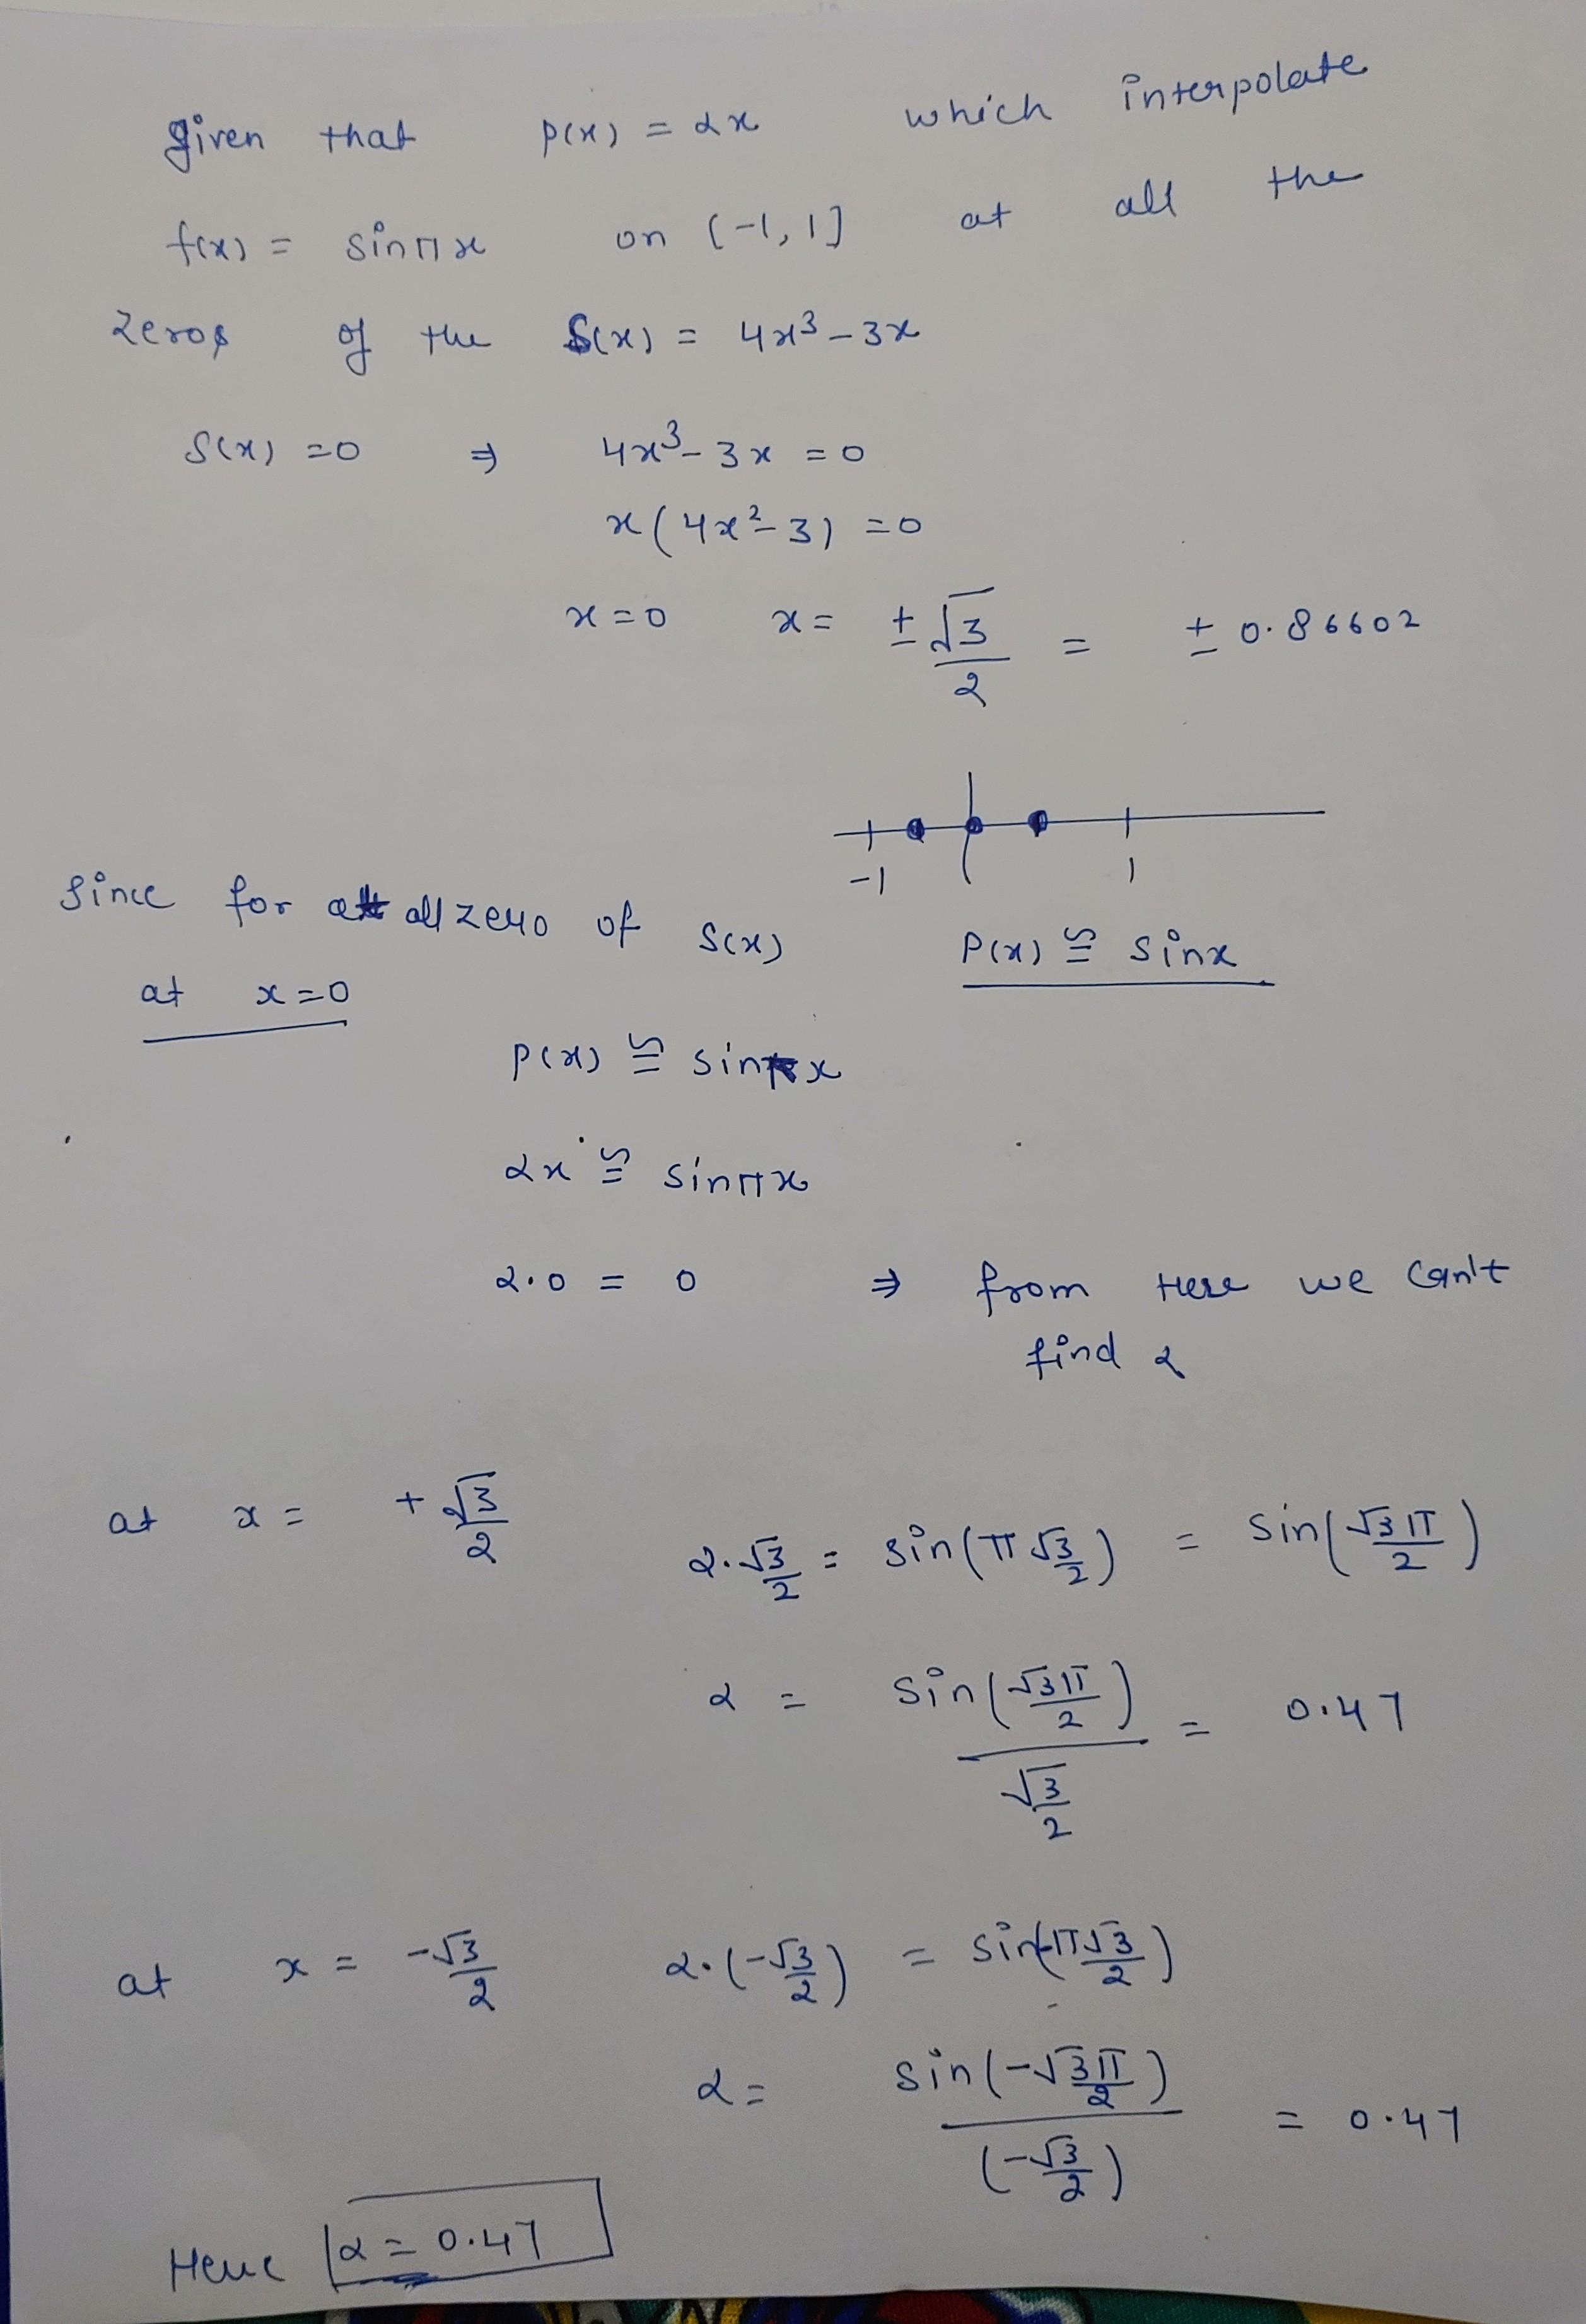 given that p(x) = αx which interpolate
f(x) = sinπx on (-1, 1] at all the
zeros of the S(x) = 4x³ - 3x
S(x) = 0 ⇒ 4x³ - 3x = 0
x(4x² - 3) = 0
x = 0 x = ± √3/2 = ± 0.86602
-1 1
Since for all zero of S(x) P(x) ≅ sinx
at x = 0
P(x) ≅ sinπx
αx ≅ sinπx
α.0 = 0 ⇒ from Here we can't
find α
at x = + √3/2 α.√3/2 = sin(π √3/2) = sin(√3π/2)
α = sin(√3π/2) / √3/2 = 0.47
at x = -√3/2 α.(-√3/2) = sin(-π√3/2)
α = sin(-√3π/2) / (-√3/2) = 0.47
Hence α = 0.47